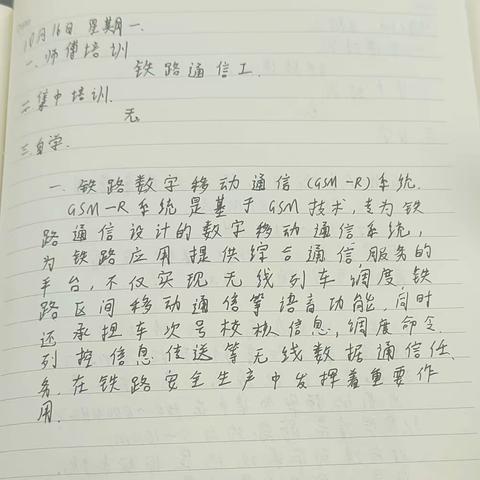 10月16日 星期一.
一、师傅培训
铁路通信工.
二.集中培训.
无
三.自学.
一. 铁路数字移动通信(GSM-R)系统.
GSM-R系统是基于GSM技术,专为铁
路通信设计的数字移动通信系统,
为铁路应用提供综合通信服务的
平台,不仅实现无线列车调度,铁
路区间移动通信等语音功能,同时
还承担车次号校核信息,调度命令.
列控信息传送等无线数据通信任
务.在铁路安全生产中发挥着重要作
用.